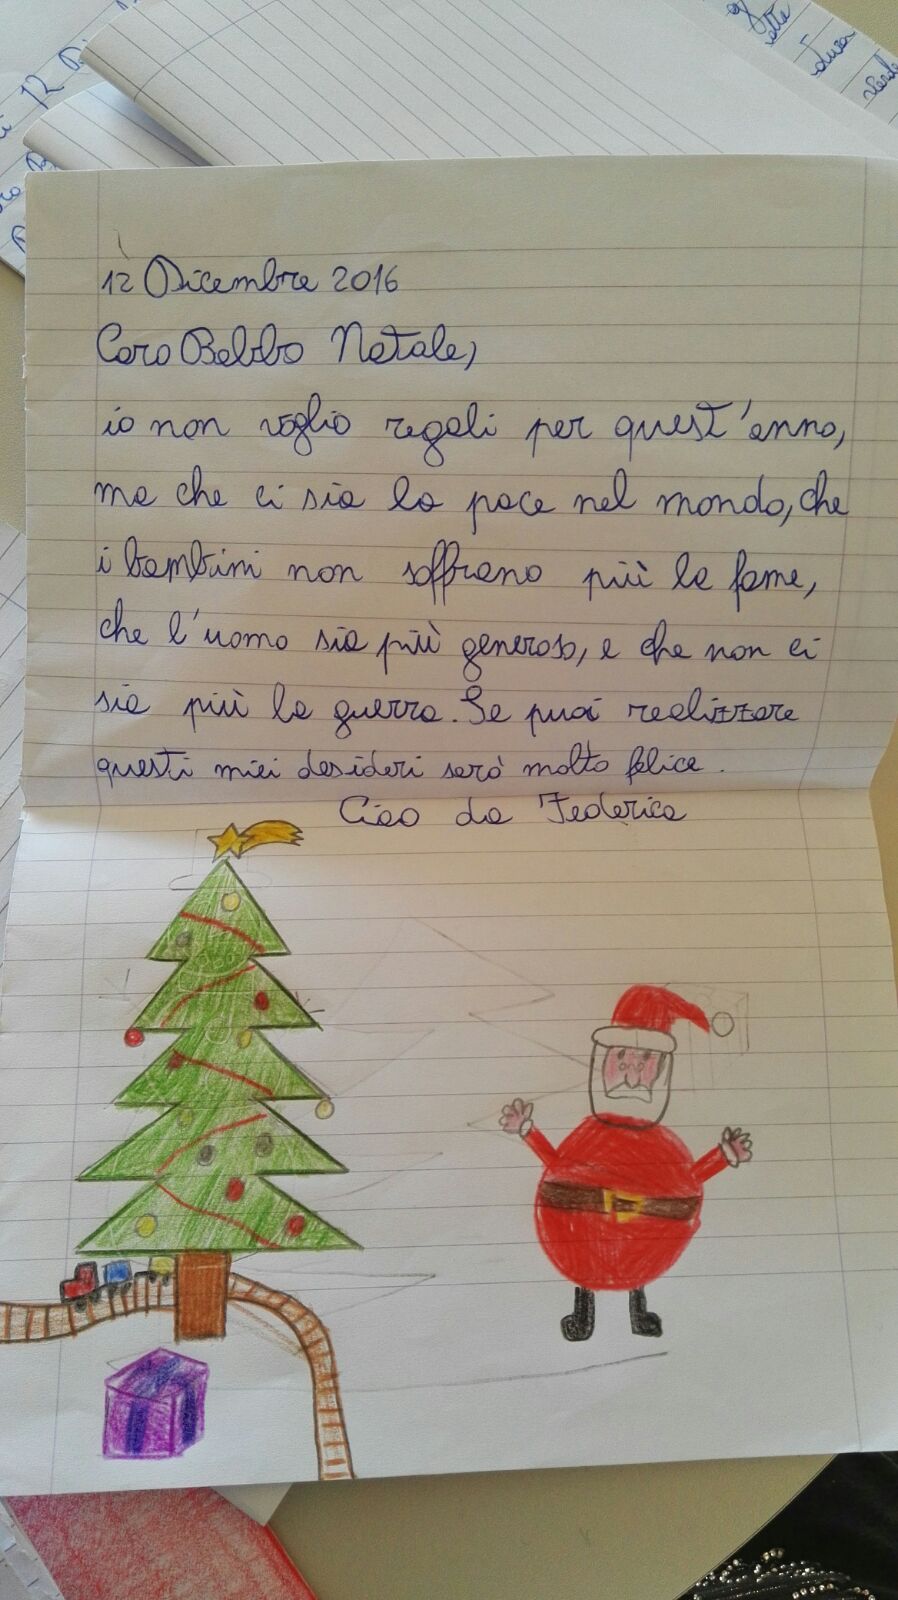 12 Dicembre 2016
Caro Babbo Natale,
io non voglio regali per quest'anno,
ma che ci sia la pace nel mondo, che
i bambini non soffrano più la fame,
che l'uomo sia più generoso, e che non ci
sia più la guerra. Se puoi realizzare
questi miei desideri sarò molto felice.
Ciao da Federica